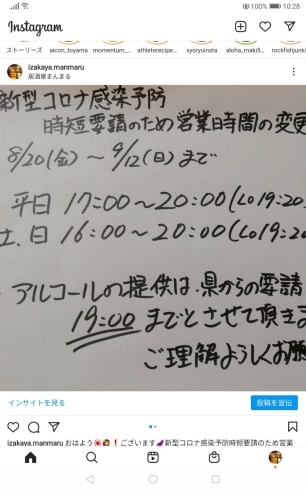 10:28
Instagram
ストーリーズ aicon_toyama momentum_... athleterecipe... syoryuinsta aloha_maki5... rockfishjunki
izakaya.manmaru
居酒屋まんまる
新型コロナ感染予防
時短要請のため営業時間の変更
8/20(金)～9/12(日)まで
平日 17:00～20:00(Lo19:20
土、日 16:00～20:00(Lo19:20
アルコールの提供は、県からの要請
19:00までとさせて頂きま
ご理解よろしくお願
インサイトを見る 投稿を宣伝
izakaya.manmaru おはよう☀️🙋❗ございます🍆新型コロナ感染予防時短要請のため営業